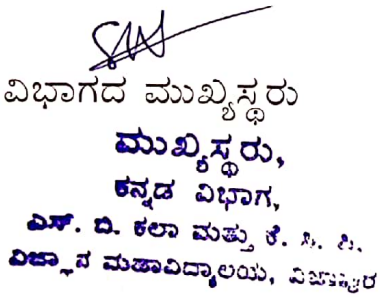 ವಿಭಾಗದ ಮುಖ್ಯಸ್ಥರು
ಮುಖ್ಯಸ್ಥರು,
ಕನ್ನಡ ವಿಭಾಗ,
ಎಸ್. ಬಿ. ಕಲಾ ಮತ್ತು ಕೆ. ಸಿ. ಪಿ.
ವಿಜ್ಞಾನ ಮಹಾವಿದ್ಯಾಲಯ, ವಿಜಾಪುರ